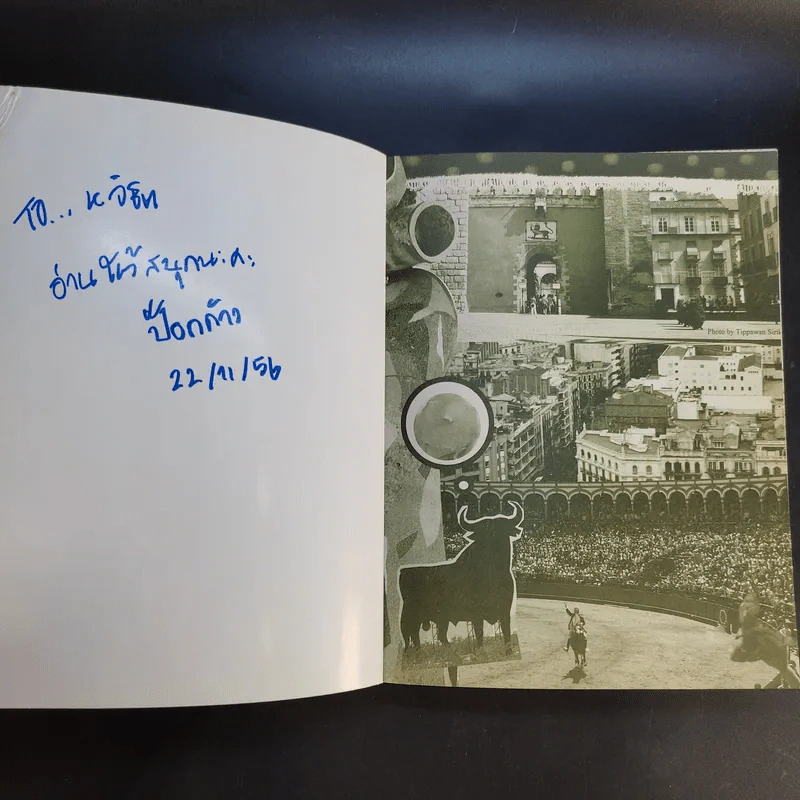 TO...
อ่านให้สนุกนะคะ
ป๊อกก้าว
22/11/56
Photo by Tippawan